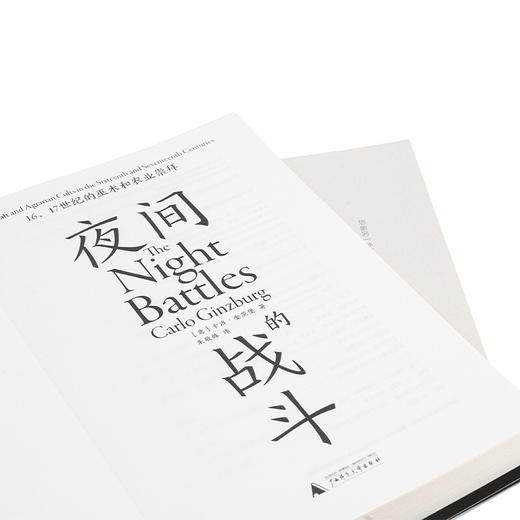 aft and Agrarian Cults in the Sixteenth and Seventeenth Centuries
16、17世纪的巫术和农业崇拜
夜间
The
Night
Battles
Carlo Ginzburg
[意] 卡洛·金茨堡 著
朱歌姝 译
的
战
斗
广西师范大学出版社